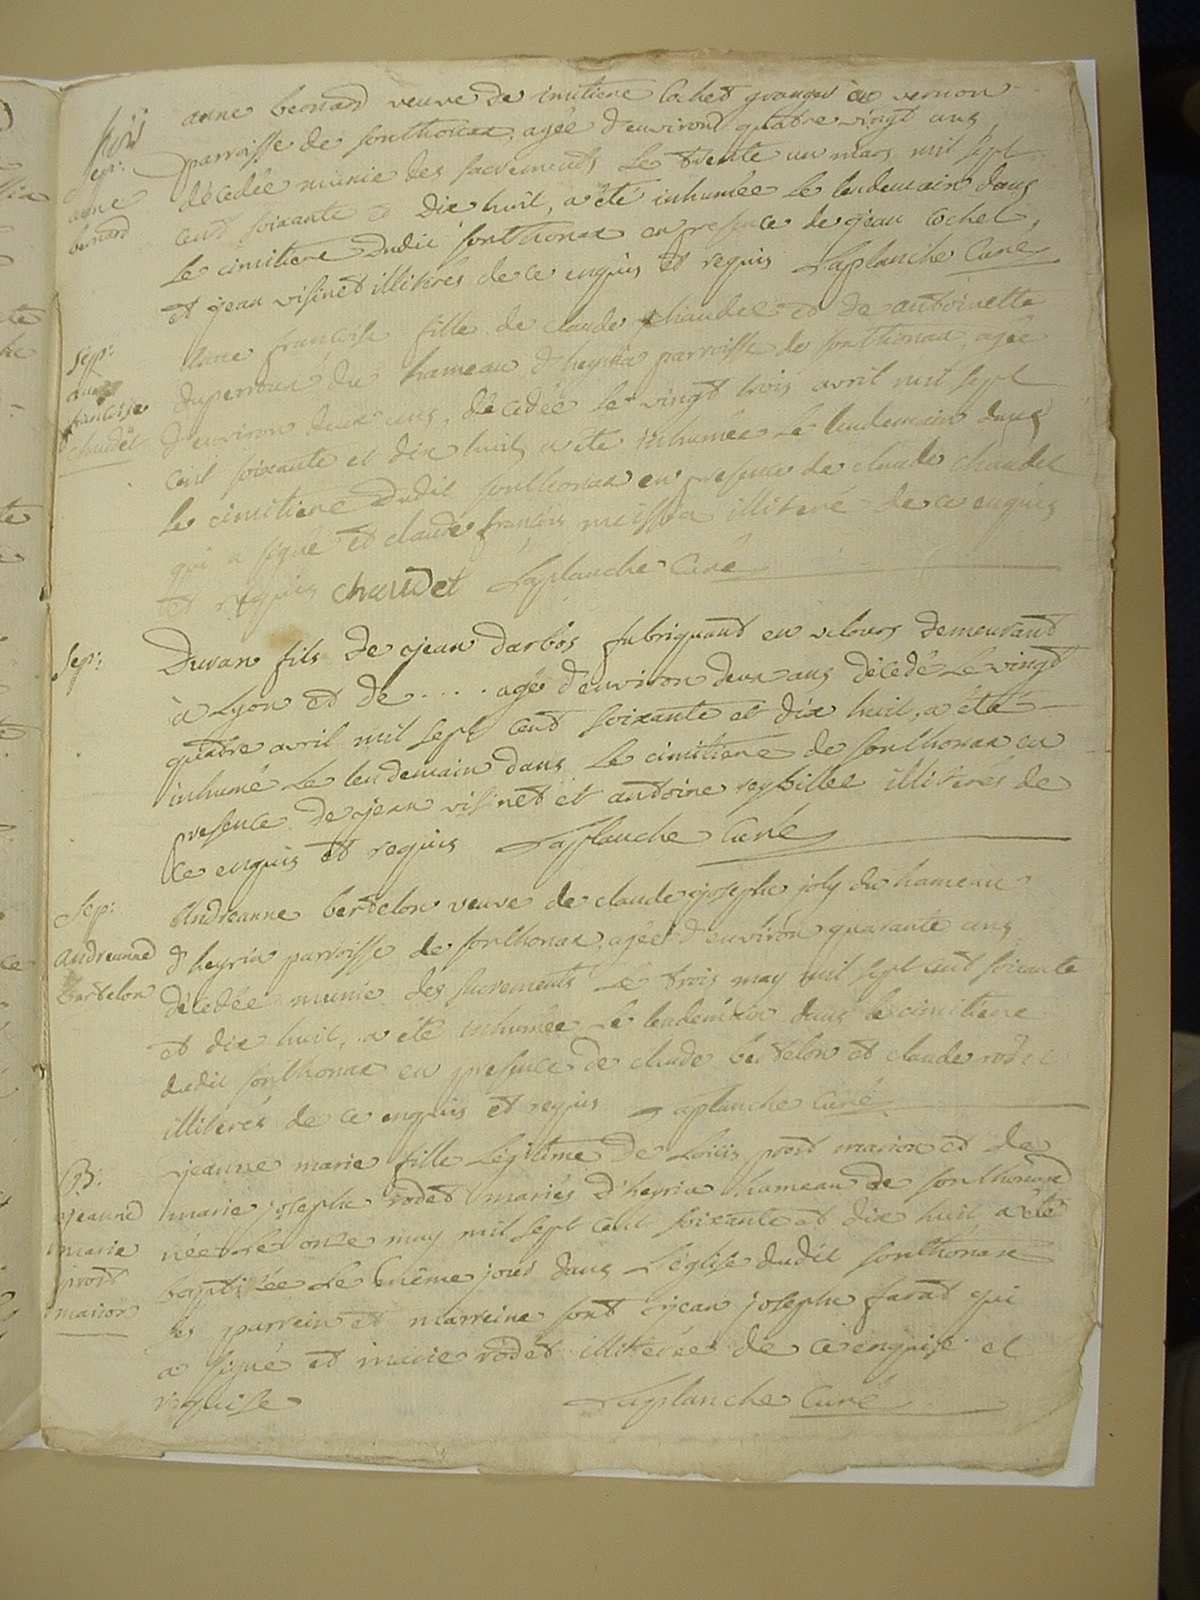 anne bernard veuve de cochet granger en vernon
Sep: parroisse de sonthonax, agée d'environ quatre vingt ans
anne décedée munie des sacrements le trente un mars mil sept
bernard cent soixante et dix huit, a été inhumée le lendemain dans
le cimitiere dudit sonthonax en presence de jean cochet,
et jean visinet illiterés de ce enquis et requis Laplanche Curé
Sep: anne françoise fille de claude chaudet et de antoinette
anne duperroux du hameau d'heyria parroisse de sonthonax, agée
françoise d'environ deux ans, décedée le vingt trois avril mil sept
chaudet cent soixante et dix huit a été inhumée le lendemain dans
le cimitiere dudit sonthonax en presence de claude chaudet
qui a signé et claude françois illiteré de ce enquis
et requis chaudet Laplanche Curé
Sep: Duvan fils de jean darbos fabriquand en velours demeurand
à Lyon et de . . . . agé d'environ deux ans décedé le vingt
quatre avril mil sept cent soixante et dix huit, a été
inhumé le lendemain dans le cimitiere de sonthonax en
presence de jean visinet et antoine reybillee illiterés de
ce enquis et requis Laplanche Curé
Sep: Andreanne bertelon veuve de claude joseph joly du hameau
andreanne d'heyria parroisse de sonthonax, agée d'environ quarante ans
bertelon décedée munie des sacrements le trois may mil sept cent soixante
et dix huit, a été inhumée le lendemain dans le cimitiere
dudit sonthonax en presence de claude bertelon et claude rodet
illiterés de ce enquis et requis Laplanche Curé
B: jeanne marie fille légitime de Loüis prost marion et de
jeanne marie josephe rodet mariés d'heyria hameau de sonthonax
marie née le onze may mil sept cent soixante et dix huit, a été
prost baptisée le même jour dans l'église dudit sonthonax
marion les parrein et marreine sont jean joseph farat qui
a signé et marie rodet illiterée de ce enquise et
requise Laplanche Curé